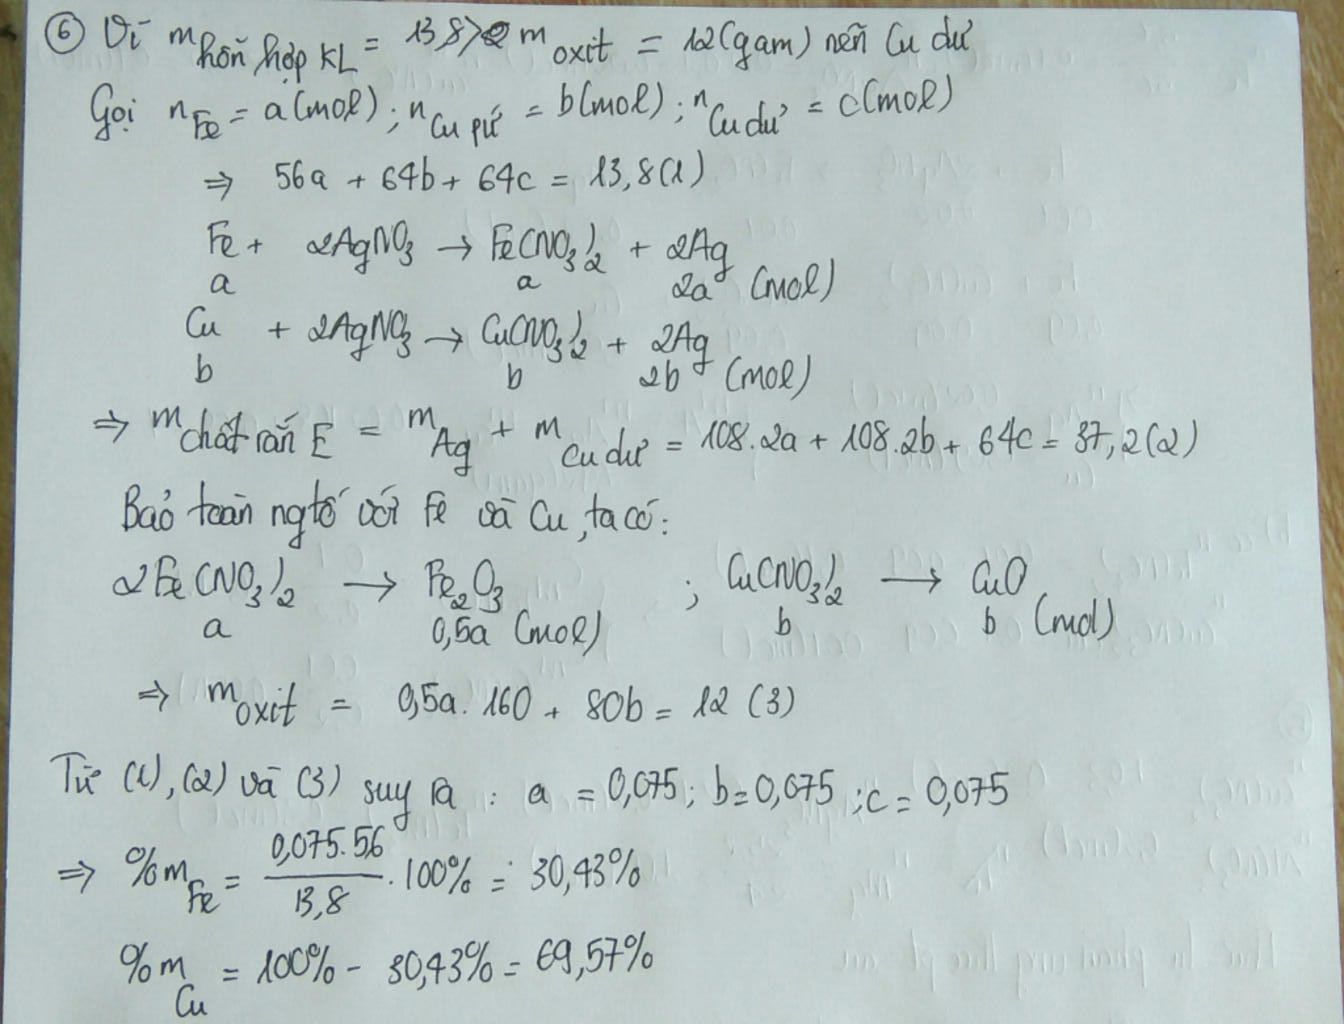 ⑥ Vì m hỗn hợp KL = 13,8 > m oxit = 12 (gam) nên Cu dư
Gọi n Fe = a (mol); n Cu pứ = b (mol); n Cu dư = c (mol)
⇒ 56a + 64b + 64c = 13,8 (1)
Fe + 2AgNO3 → Fe(NO3)2 + 2Ag
a a 2a (mol)
Cu + 2AgNO3 → Cu(NO3)2 + 2Ag
b b 2b (mol)
⇒ m chất rắn E = m Ag + m Cu dư = 108.2a + 108.2b + 64c = 37,2 (2)
Bảo toàn ng tố với Fe và Cu, ta có:
2Fe(NO3)2 → Fe2O3 ; Cu(NO3)2 → CuO
a 0,5a (mol) b b (mol)
⇒ m oxit = 0,5a. 160 + 80b = 12 (3)
Từ (1), (2) và (3) suy ra : a = 0,075; b = 0,075; c = 0,075
⇒ %m Fe = 0,075.56 / 13,8 . 100% = 30,43%
%m Cu = 100% - 30,43% = 69,57%